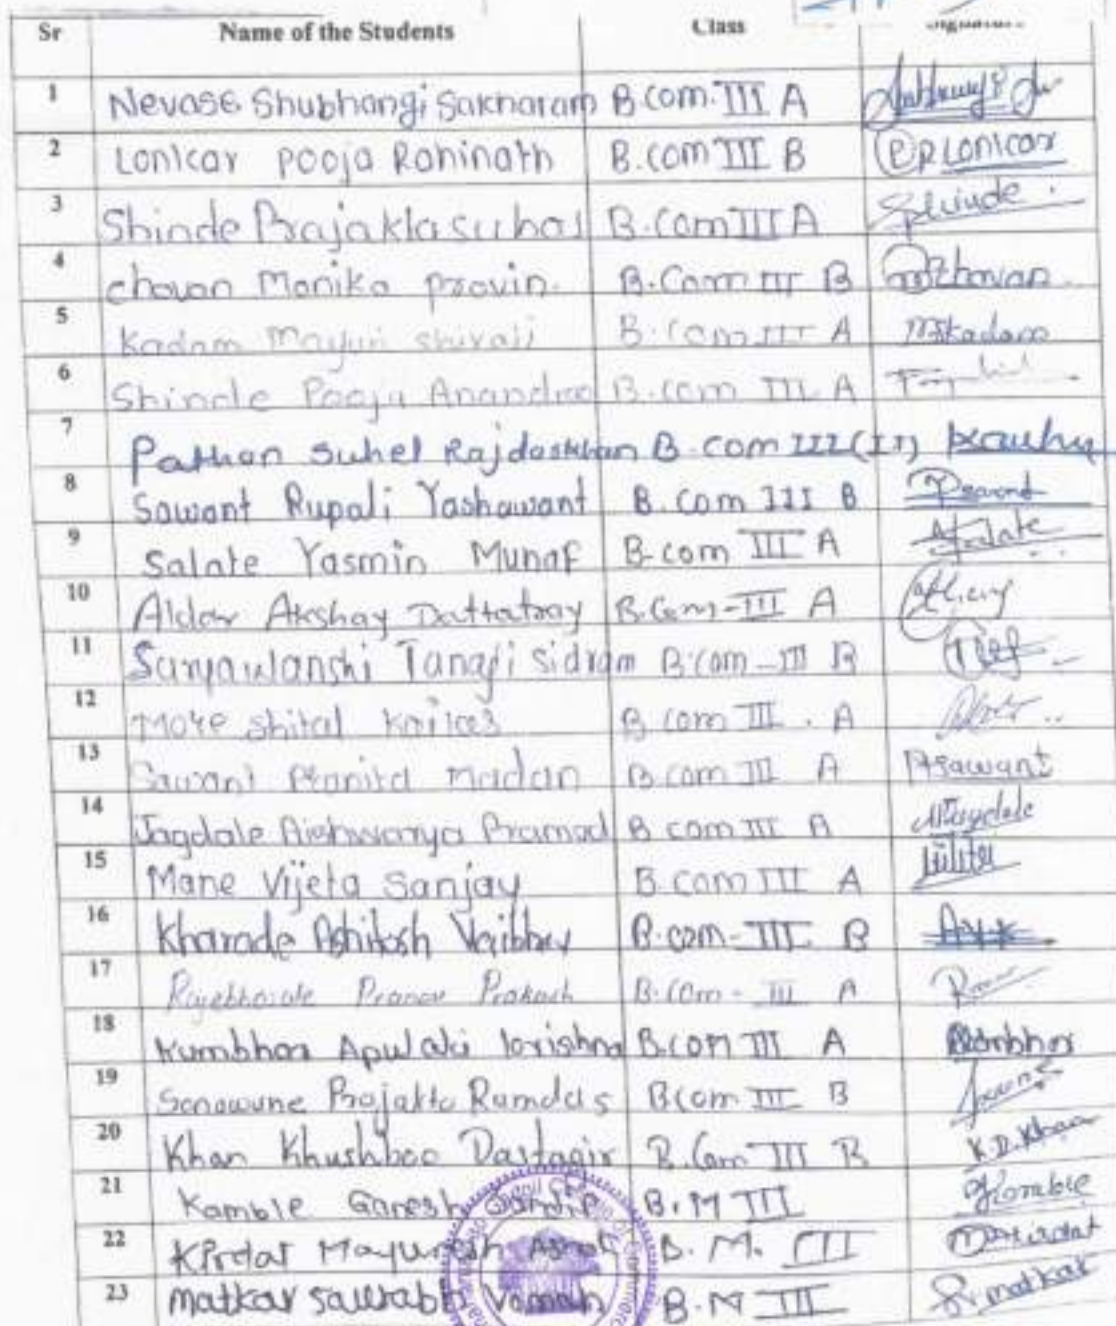 Sr Name of the Students Class Signature
1 Nevase Shubhangi Sakharam B.com.III A
2 Lonkar Pooja Rohinath B.com III B PRLonkar
3 Shinde Prajakta suhas B.com III A Shinde
4 chavan Monika pravin. B.Com III B Chavan
5 Kadam Mayuri shivaji B.com III A MSkadam
6 Shinde Pooja Anandrao B.com III A
7 Pathan Suhel Rajdaskhan B.com III (II)
8 Sawant Rupali Yashawant B.Com III B Rsawant
9 Salate Yasmin Munaf B.com III A Salate
10 Aldar Akshay Dattatray B.Com-III A
11 Suryawanshi Tanaji Sidram B.com-III B
12 More shital kailas B com III . A
13 Sawant Pranita Madan B.com III A Psawant
14 Jagdale Aishwarya Pramod B com III A Jagdale
15 Mane Vijeta Sanjay B.com III A
16 Kharade Ashitosh Vaibhav B.com-III B
17 Rajebhosale Pranav Prakash B.Com - III A
18 Kumbhar krishna B.com III A Kumbhar
19 Sonawane Prajakta Ramdas B.com III B
20 Khan Khushboo Dastagir B.Com III B K.D.Khan
21 Kamble Ganesh B.M III Kamble
22 Kirdat Mayuresh Ashok B.M. III Mkirdat
23 matkar saurabh Vaman B.M III S.matkar